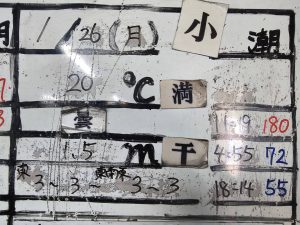 1/26(月) 小潮
20 ℃ 満
曇 11:19 180
1.5 m 干 4:55 72
東 3~3 東南東 3~3 18:14 55